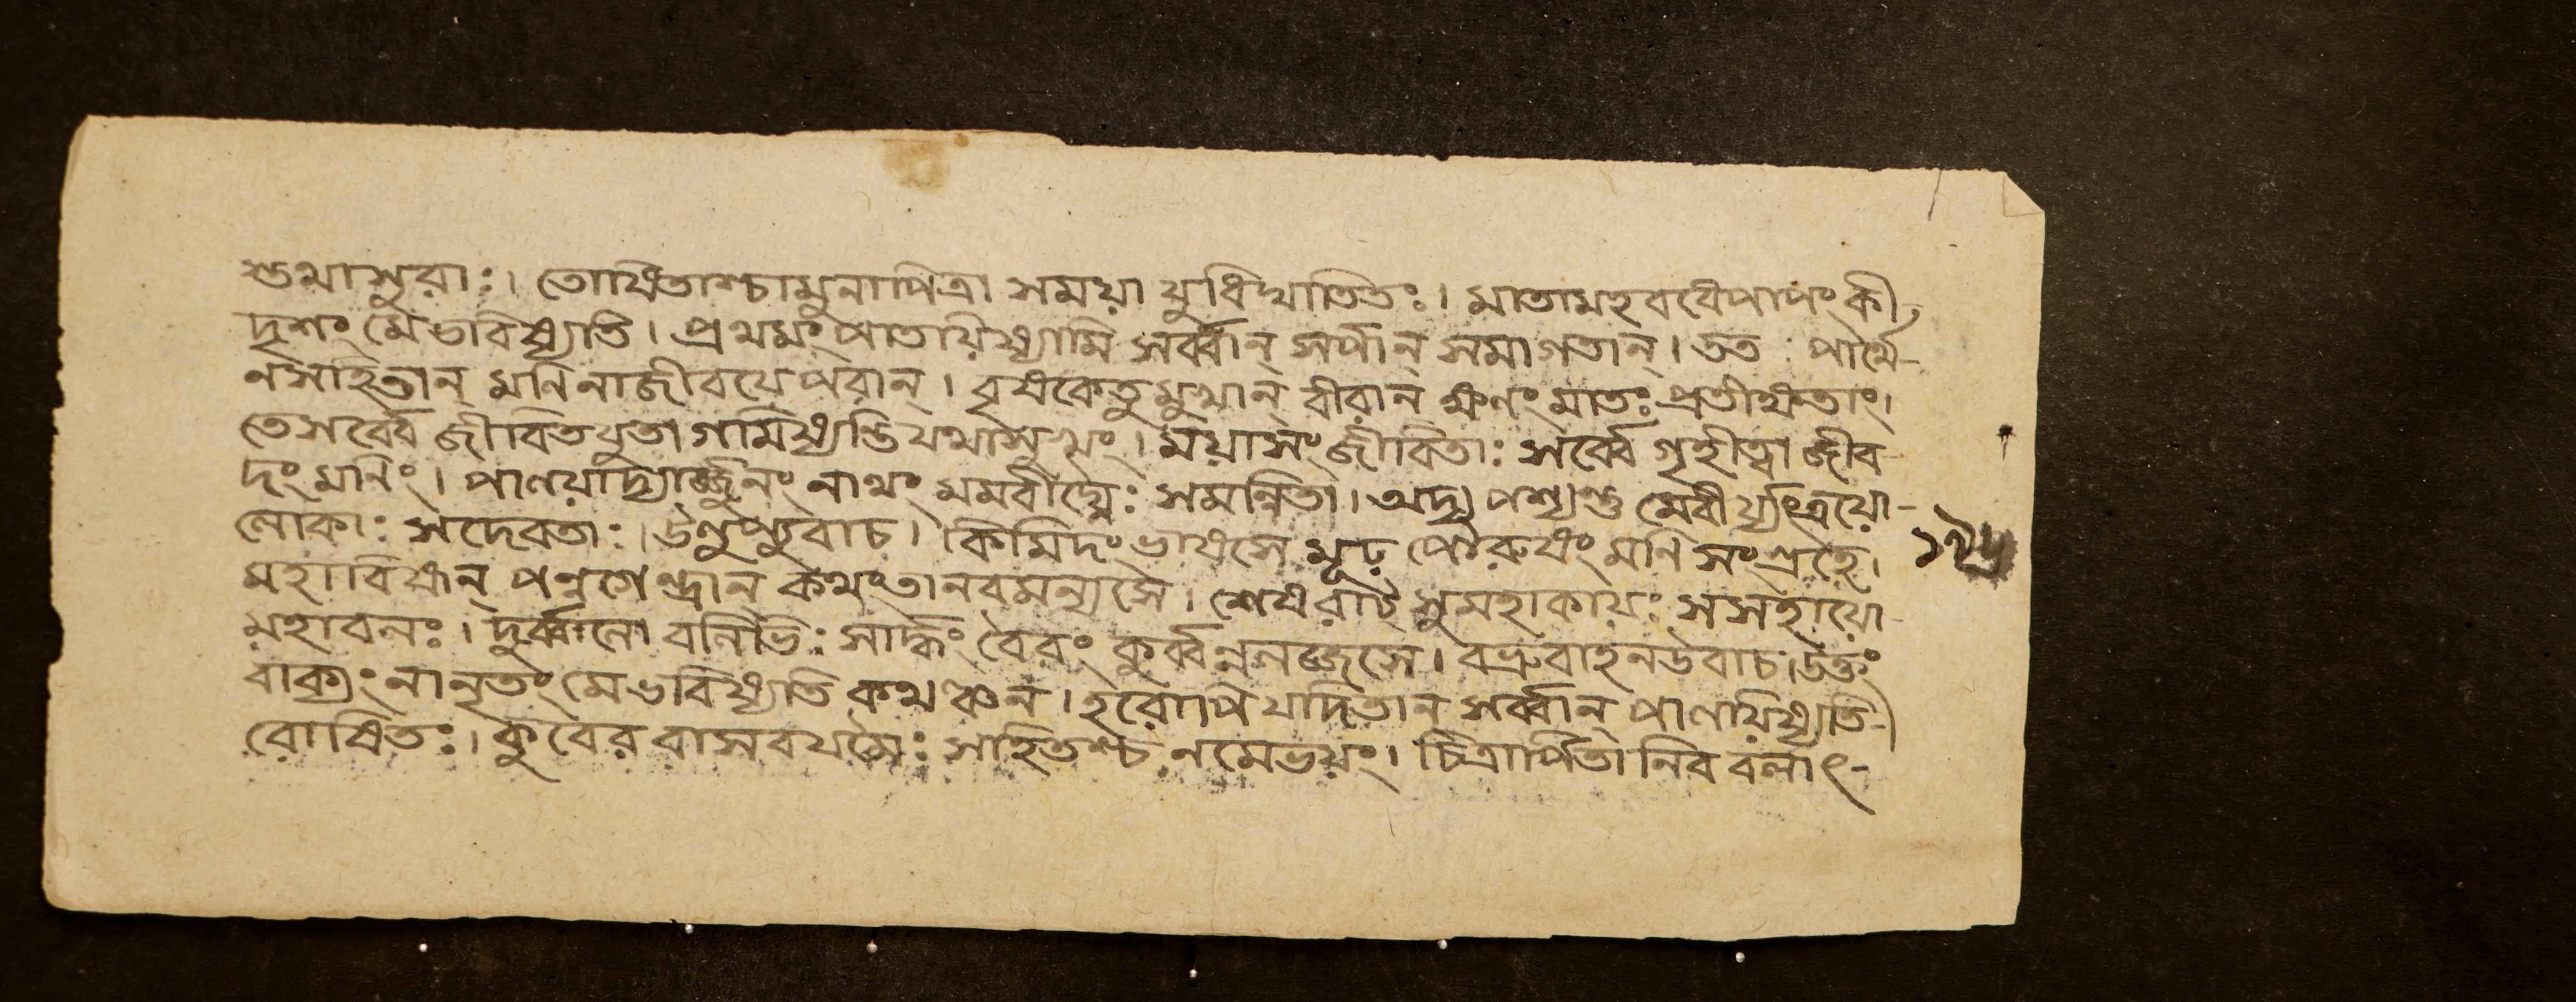 শুমাসুরাঃ। তোষিতাশ্চামুনাপিত্রা সময়া যুধিঘাতিতঃ। মাতামহবধেপাপং কী
দৃশং মেভবিষ্যতি। প্রথমং পাতয়িষ্যামি সর্ব্বান্ সর্পান্ সমাগতান্। তত : পার্থে-
নসহিতান্ মনিনাজীবয়েপরান্। বৃষকেতুমুখান্ বীরান ক্ষণং মাতঃ প্রতীক্ষতাং।
তেসর্ব্বে জীবিতযুতা গমিষ্যন্তি যথাসুখং। ময়াসংজীবিতাঃ সর্ব্বে গৃহীত্বা জীব-
দং মনিং। পাণয়াদ্যার্জ্জুনং নাথং মমবীর্য্যৈঃ সমন্বিতা। অদ্য পশ্যন্তু মেবীর্য্যংত্রয়ো-
লোকাঃ সদেবতাঃ। উলুপ্যুবাচ। কিমিদং ভাষসে মূঢ় পৌরুষং মনি সংগ্রহে।
মহাবিষান্ পন্নগেন্দ্রান্ কথংতানবমন্যসে। শেষরাট্ সুমহাকায়ঃ সসহায়ো-
মহাবলঃ। দুর্ব্বলো বলিভিঃ সার্দ্ধং বৈরং কুর্ব্বন্নলজ্জসে। বভ্রুবাহনউবাচ। উক্তং
বাক্যং নানৃতং মেভবিষ্যতি কথঞ্চন। হরোপি যদিতান্ সর্ব্বান্ পালয়িষ্যতি-
রোষিতঃ। কুবের বাসবযমৈঃ সহিতশ্চ নমেভয়ং। চিত্রার্পিতানিব বলাৎ-